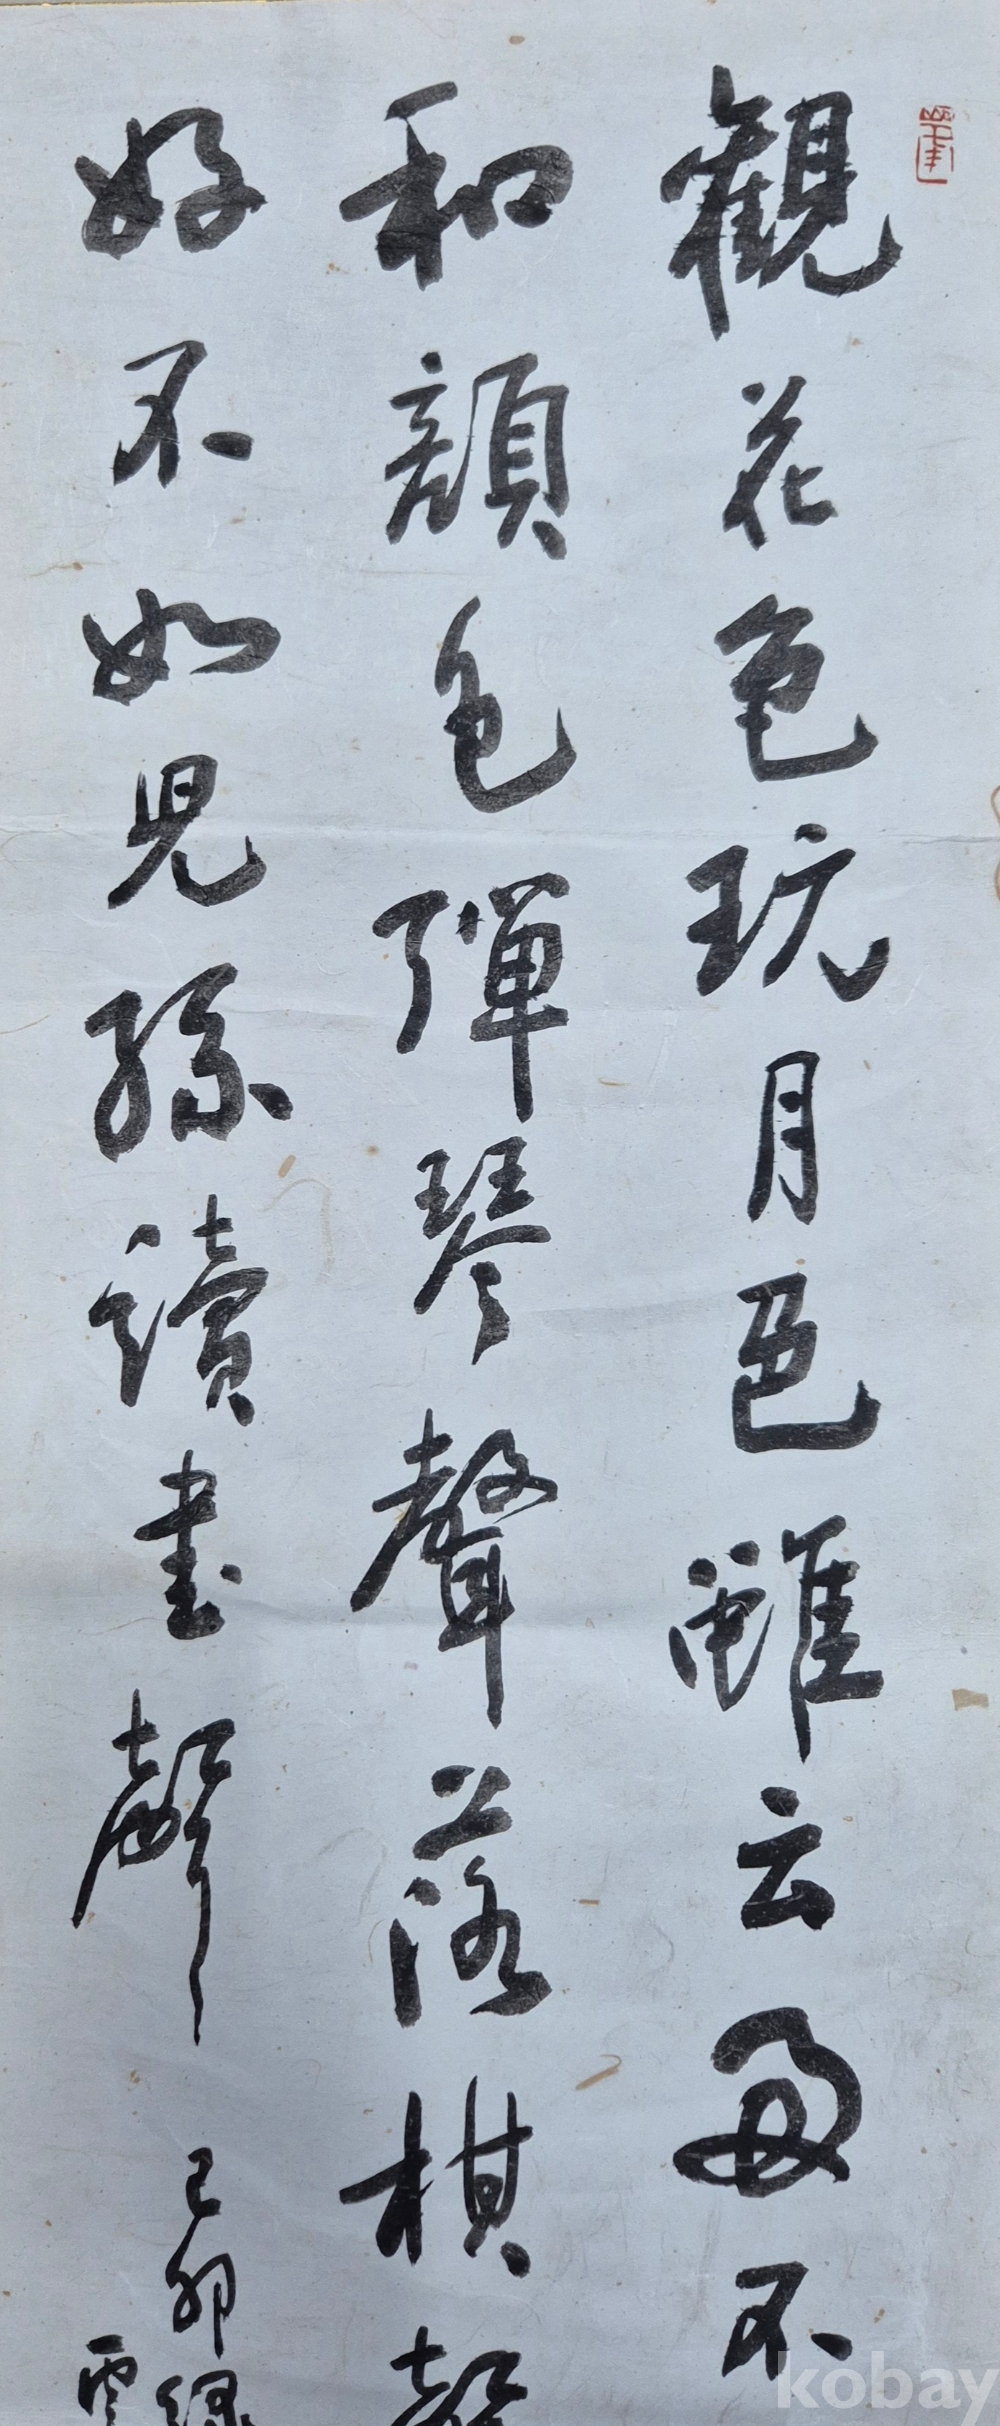 觀花色玩月色雖云多不
和顔色彈琴聲落棋聲
好不如児孫讀書聲
己卯綠
雲
kobay